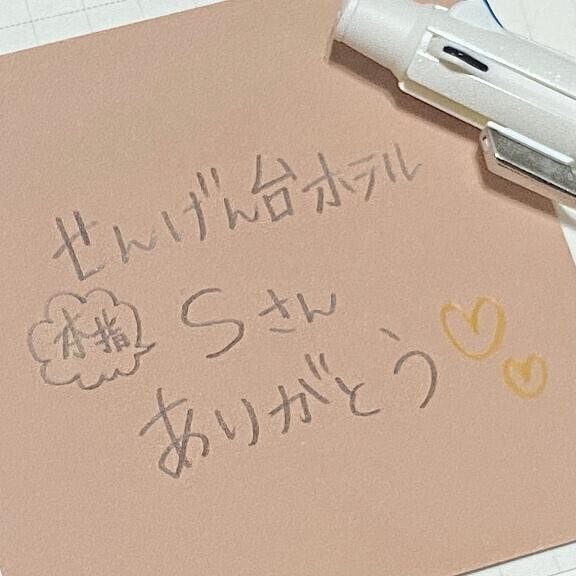 せんげん台ホテル
本指 Sさん
ありがとう